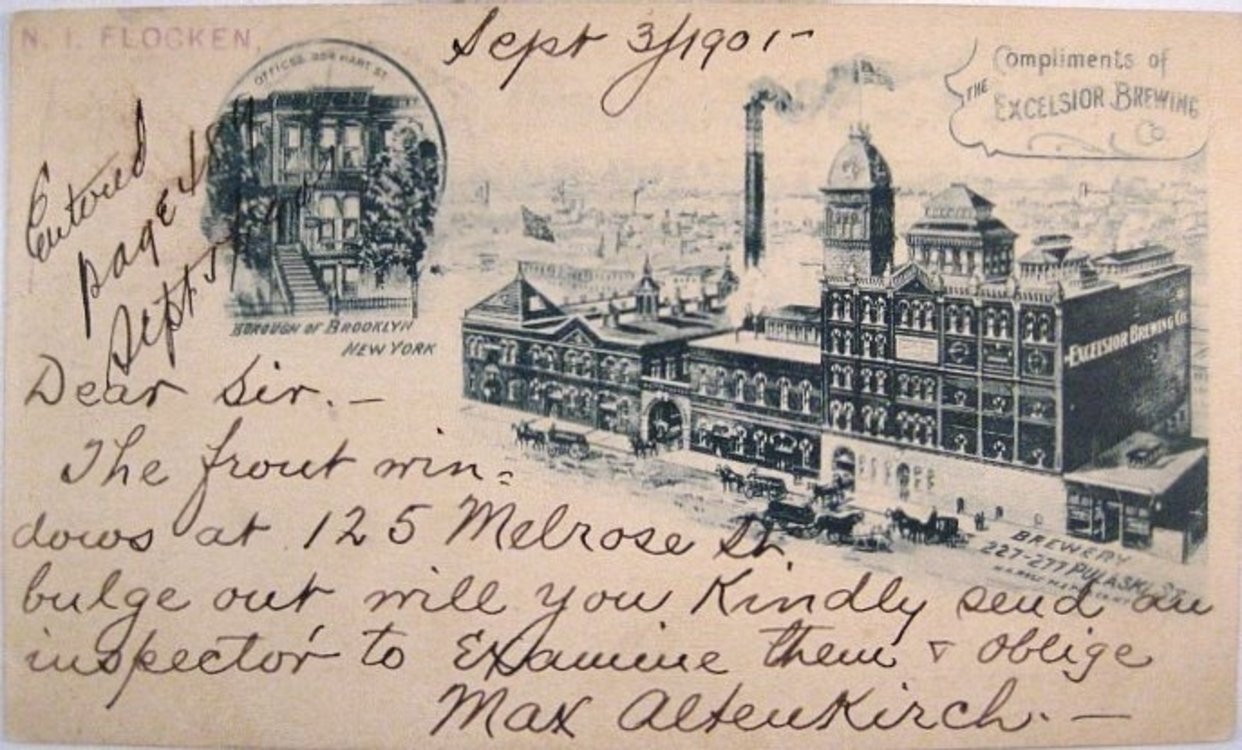 N. I. FLOCKEN,
Sept 3/1901-
Compliments of
THE EXCELSIOR BREWING
Co.
OFFICES HART ST.
BOROUGH OF BROOKLYN
NEW YORK
Entered
page
Sept 5
EXCELSIOR BREWING Co.
BREWERY
227-277 PULASKI ST.
Dear Sir. -
The front win=
dows at 125 Melrose St.
bulge out will you Kindly send an
inspector to Examine them & oblige
Max Altenkirch. -